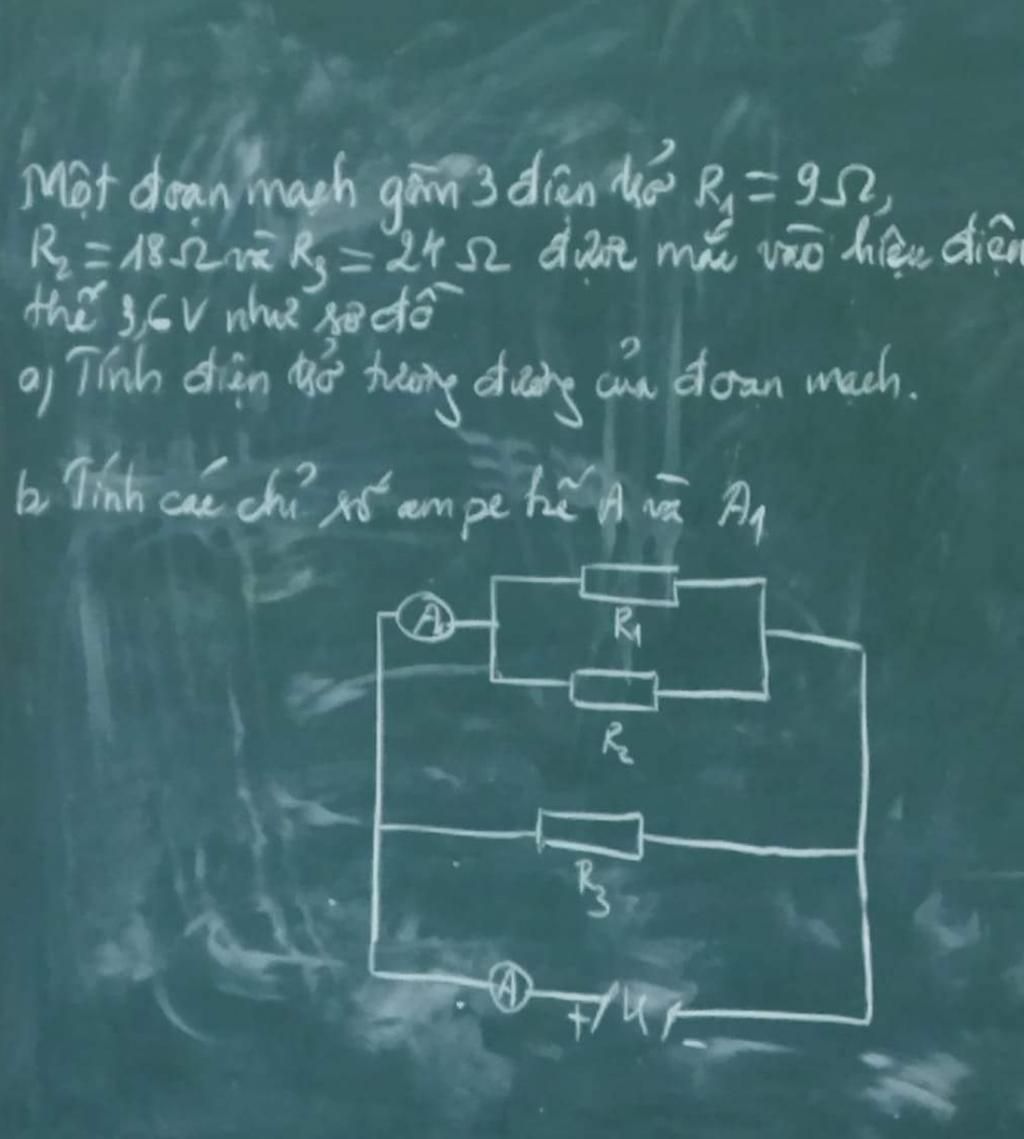 Một đoạn mạch gồm 3 điện trở R₁ = 9Ω,
R₂ = 18Ω và R₃ = 24Ω được mắc vào hiệu điện
thế 3,6V như sơ đồ
a) Tính điện trở tương đương của đoạn mạch.
b Tính các chỉ số ampe kế A và A₁
A₁
R₁
R₂
R₃
A
+ U -